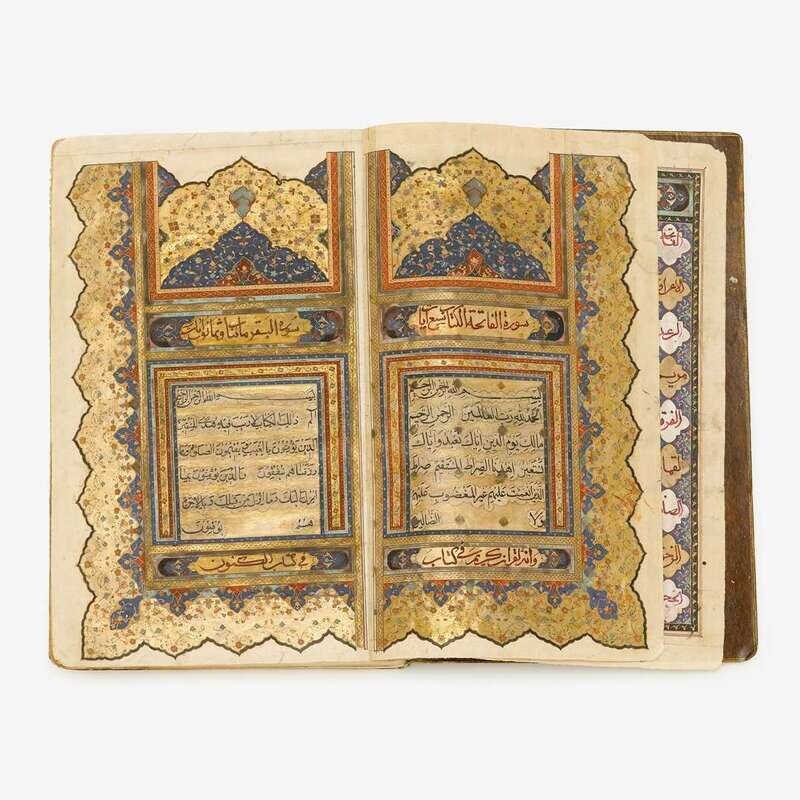 سورة الفاتحة الكتاب سبع ايات
بسم الله الرحمن الرحيم
الحمد لله رب العالمين الرحمن الرحيم
مالك يوم الدين اياك نعبد واياك
نستعين اهدنا الصراط المستقيم صراط
الذين انعمت عليهم غير المغضوب عليهم
ولا الضالين
وانه لقران كريم في كتاب
سورة البقر مائتان وثمانون
بسم الله الرحمن الرحيم
الم ذلك الكتاب لا ريب فيه هدى للمتقين
الذين يؤمنون بالغيب ويقيمون الصلوة ومما
رزقناهم ينفقون والذين يؤمنون بما
انزل اليك وما انزل من قبلك وبالاخرة
هم يوقنون
في كتاب مكنون
الرعد
مريم